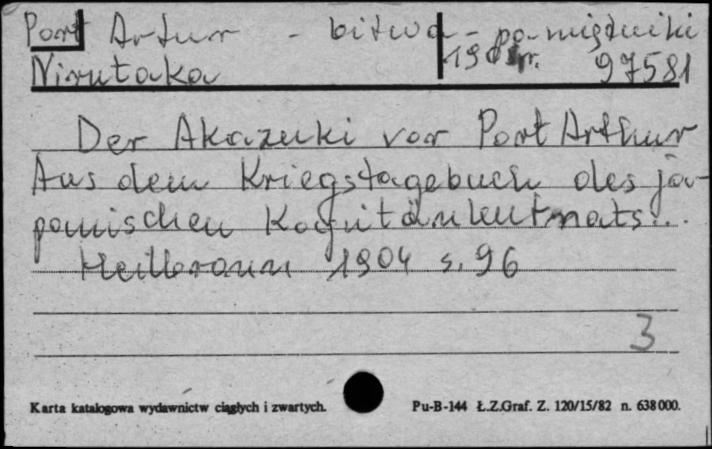 Port Artur - bitwa - pamiętniki
Nirutaka 190 r. 97581
Der Akazuki vor Port Arthur
Aus dem Kriegstagebuch des ja-
panischen Kapitänleutnats...
Heilbronn 1904 s. 96
3
Karta katalogowa wydawnictw ciągłych i zwartych. Pu-B-144 Ł.Z.Graf. Z. 120/15/82 n. 638000.